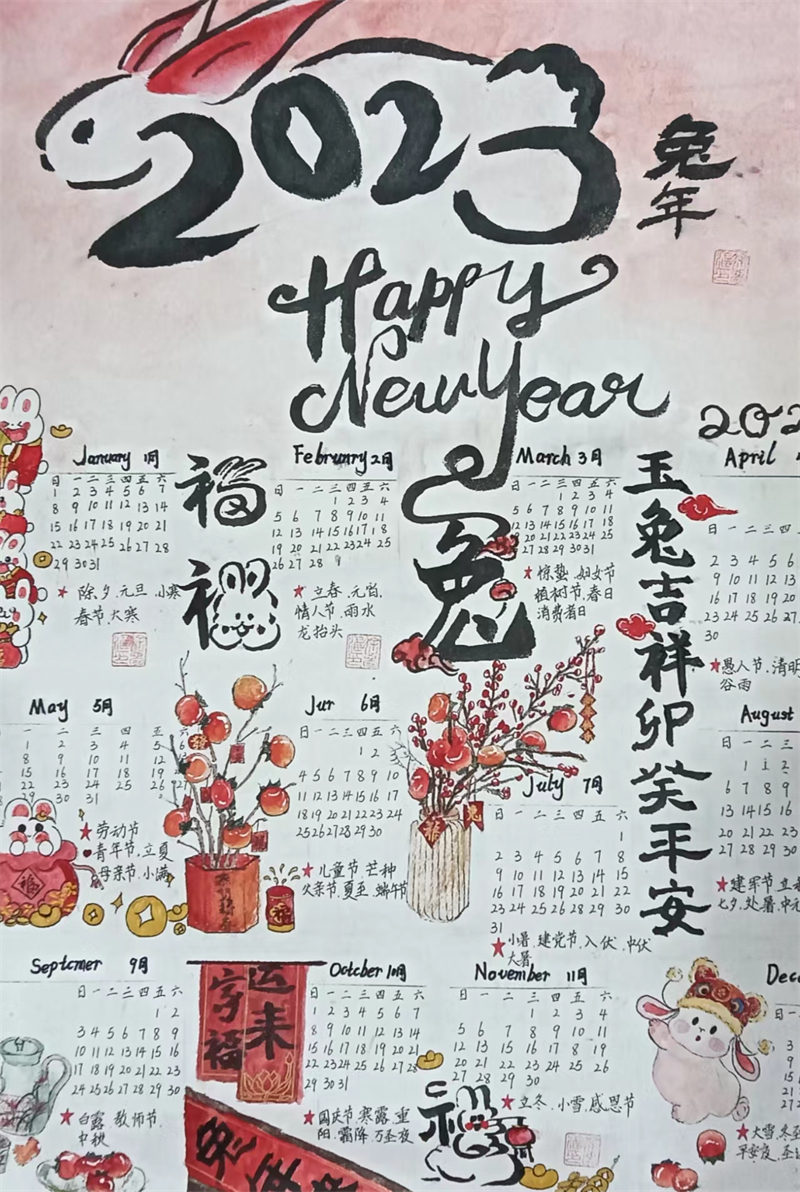 2023
兔年
Happy
New Year
202
January 1月
日 一 二 三 四 五 六
1 2 3 4 5 6 7
8 9 10 11 12 13 14
15 16 17 18 19 20 21
22 23 24 25 26 27 28
29 30 31
★ 除夕、元旦、小寒
春节、大寒
福
福
Februnry 2月
日 一 二 三 四 五 六
1 2 3 4
5 6 7 8 9 10 11
12 13 14 15 16 17 18
19 20 21 22 23 24 25
26 27 28
★ 立春、元宵、
情人节、雨水
龙抬头
兔
March 3月
日 一 二 三 四 五 六
1 2 3 4
5 6 7 8 9 10 11
12 13 14 15 16 17 18
19 20 21 22 23 24 25
27 28 29 30 31
★ 惊蛰、妇女节
植树节、春日
消费者日
玉兔吉祥卯癸平安
April
日 一 二 三 四
2 3 4 5 6
9 10 11 12 13
16 17 18 19 20
23 24 25 26 27
30
★愚人节、清明
谷雨
May 5月
一 二 三 四 五 六
1 2 3 4 5 6
8 9 10 11 12
15 16 17 18 19 20
22 23 24 25 26 27
29 30 31
★ 劳动节
青年节、立夏
母亲节、小满
福
Jur 6月
日 一 二 三 四 五 六
1 2 3
4 5 6 7 8 9 10
11 12 13 14 15 16 17
18 19 20 21 22 23 24
25 26 27 28 29 30
★儿童节 芒种
父亲节、夏至、端午节
福
兔
July 7月
日 一 二 三 四 五 六
1
2 3 4 5 6 7 8
9 10 11 12 13 14 15
16 17 18 19 20 21 22
23 24 25 26 27 28 29
30
31
★小暑、建党节、入伏、中伏
大暑
August
日 一 二 三
1 2
6 7 8 9
13 14 15 16
20 21 22 23
27 28 29 30
★建军节 立
七夕、处暑、中元
Septcmer 9月
日 一 二 三 四 五 六
1 2
3 4 5 6 7 8 9
10 11 12 13 14 15 16
17 18 19 20 21 22 23
24 25 26 27 28 29 30
★ 白露 教师节、
中秋
字福
运来
兔年
Octcber 10月
日 一 二 三 四 五 六
1 2 3 4 5 6 7
8 9 10 11 12 13 14
15 16 17 18 19 20 21
22 23 24 25 26 27 28
29 30 31
★国庆节、寒露、重
阳、霜降、万圣夜
November 11月
日 一 二 三 四 五 六
1 2 3 4
5 6 7 8 9 10 11
12 13 15 16 17 18 19
20 21 22 23 24 25 26
27 28 29 30
★立冬、小雪、感恩节
福
Dec
日 一
3
★大雪、冬至
平安夜、圣